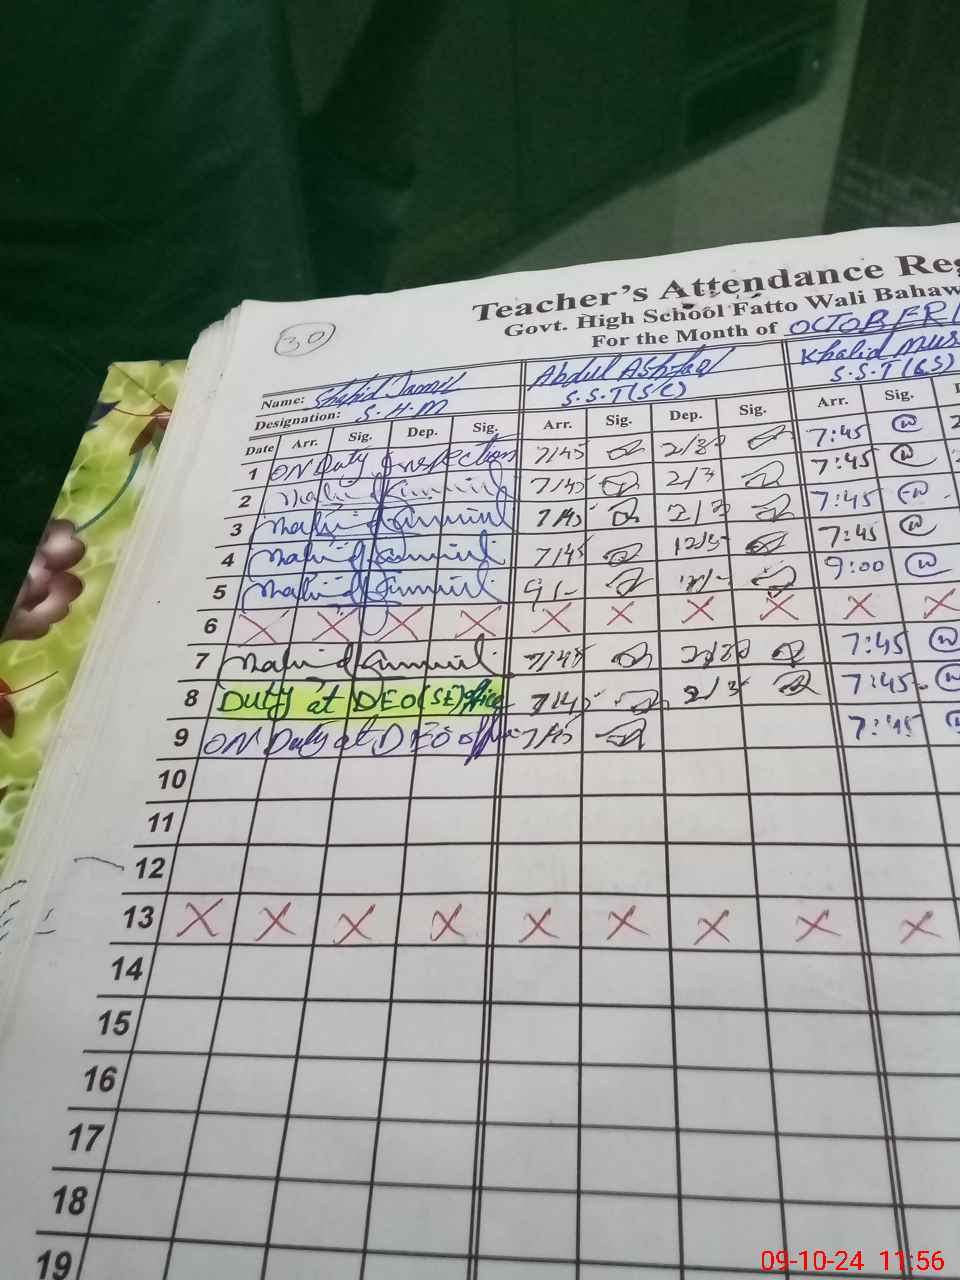 30
Teacher's Attendance Reg
Govt. High School Fatto Wali Bahaw
For the Month of OCTOBER
Name: Shahid Jamil Abdul Ashfaq Khalid
Designation: S.H.M S.S.T(SC) S.S.T(GS)
Date Arr. Sig. Dep. Sig. Arr. Sig. Dep. Sig. Arr. Sig.
1 ON Duty Inspection 7/45 2/30 7:45
2 7/45 2/3 7:45
3 7/45 2/3 7:45
4 7/45 7:45
5 9/- 9:00
6 X X X X X X X X X X
7 7/45 2/30 7:45
8 Duty at DEO(SE) office 7/45 2/3 7:45
9 ON Duty at DEO office 7/45 7:45
10
11
12
13 X X X X X X X X X
14
15
16
17
18
19
09-10-24 11:56